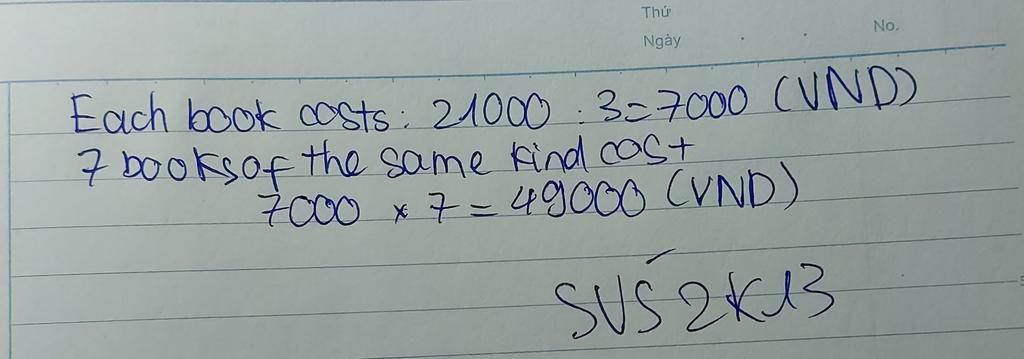 Thứ
Ngày
No.
Each book costs: 21000 : 3 = 7000 (VND)
7 books of the same kind cost
7000 × 7 = 49000 (VND)
SVS 2K13